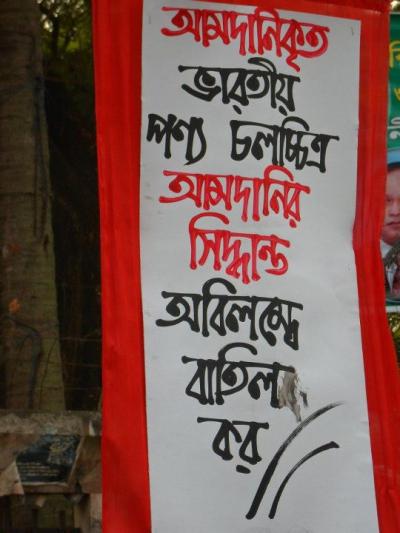 আমদানিকৃত
ভারতীয়
পণ্য চলচ্চিত্র
আমদানির
সিদ্ধান্ত
অবিলম্বে
বাতিল
কর